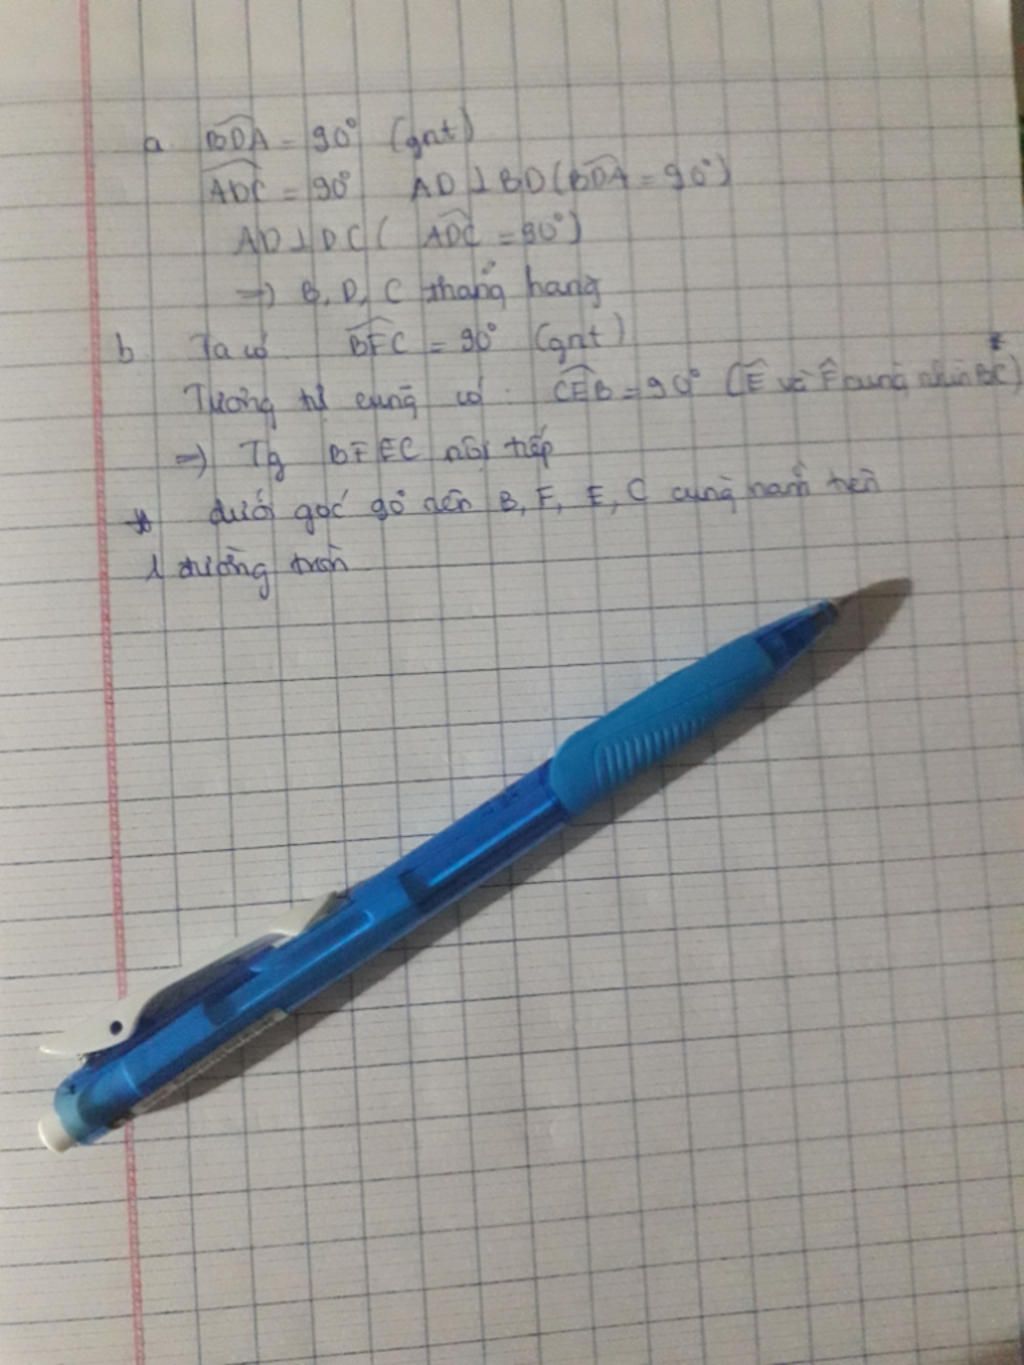 a BDA = 90° (gnt)
ADC = 90° AD ⊥ BD (BDA = 90°)
AD ⊥ DC ( ADC = 90°)
=> B, D, C thẳng hàng
b Ta có BFC = 90° (gnt)
Tương tự cũng có : CEB = 90° (Ê và F̂ cùng nhìn BC *)
=> Tg BFEC nội tiếp
* dưới góc 90 nên B, F, E, C cùng nằm trên
1 đường tròn